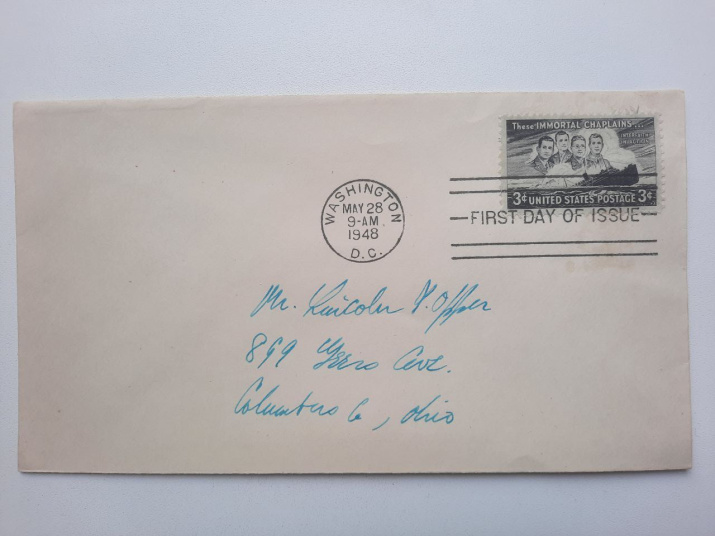 These IMMORTAL CHAPLAINS...
INTERFAITH
IN ACTION
3¢ UNITED STATES POSTAGE 3¢
WASHINGTON
MAY 28
9-AM
1948
D.C.
FIRST DAY OF ISSUE
Mr. Lincoln Opper
899 Ave.
Columbus 6, Ohio